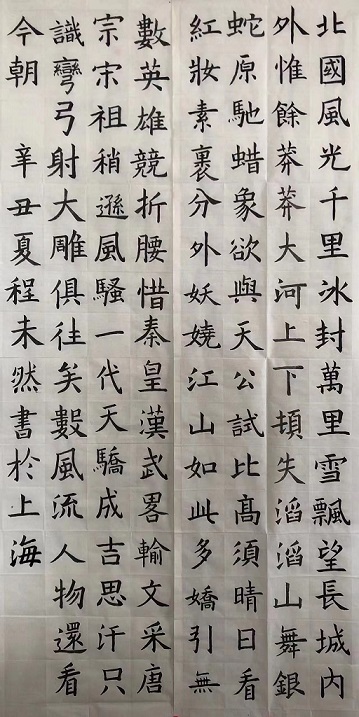 北國風光千里冰封萬里雪飄望長城内
外惟餘莽莽大河上下頓失滔滔山舞銀
蛇原馳蜡象欲與天公試比髙須晴日看
紅妝素裹分外妖嬈江山如此多嬌引無
數英雄競折腰惜秦皇漢武畧輸文采唐
宗宋祖稍遜風騷一代天驕成吉思汗只
識彎弓射大雕俱往矣數風流人物還看
今朝 辛丑夏程未然書於上海